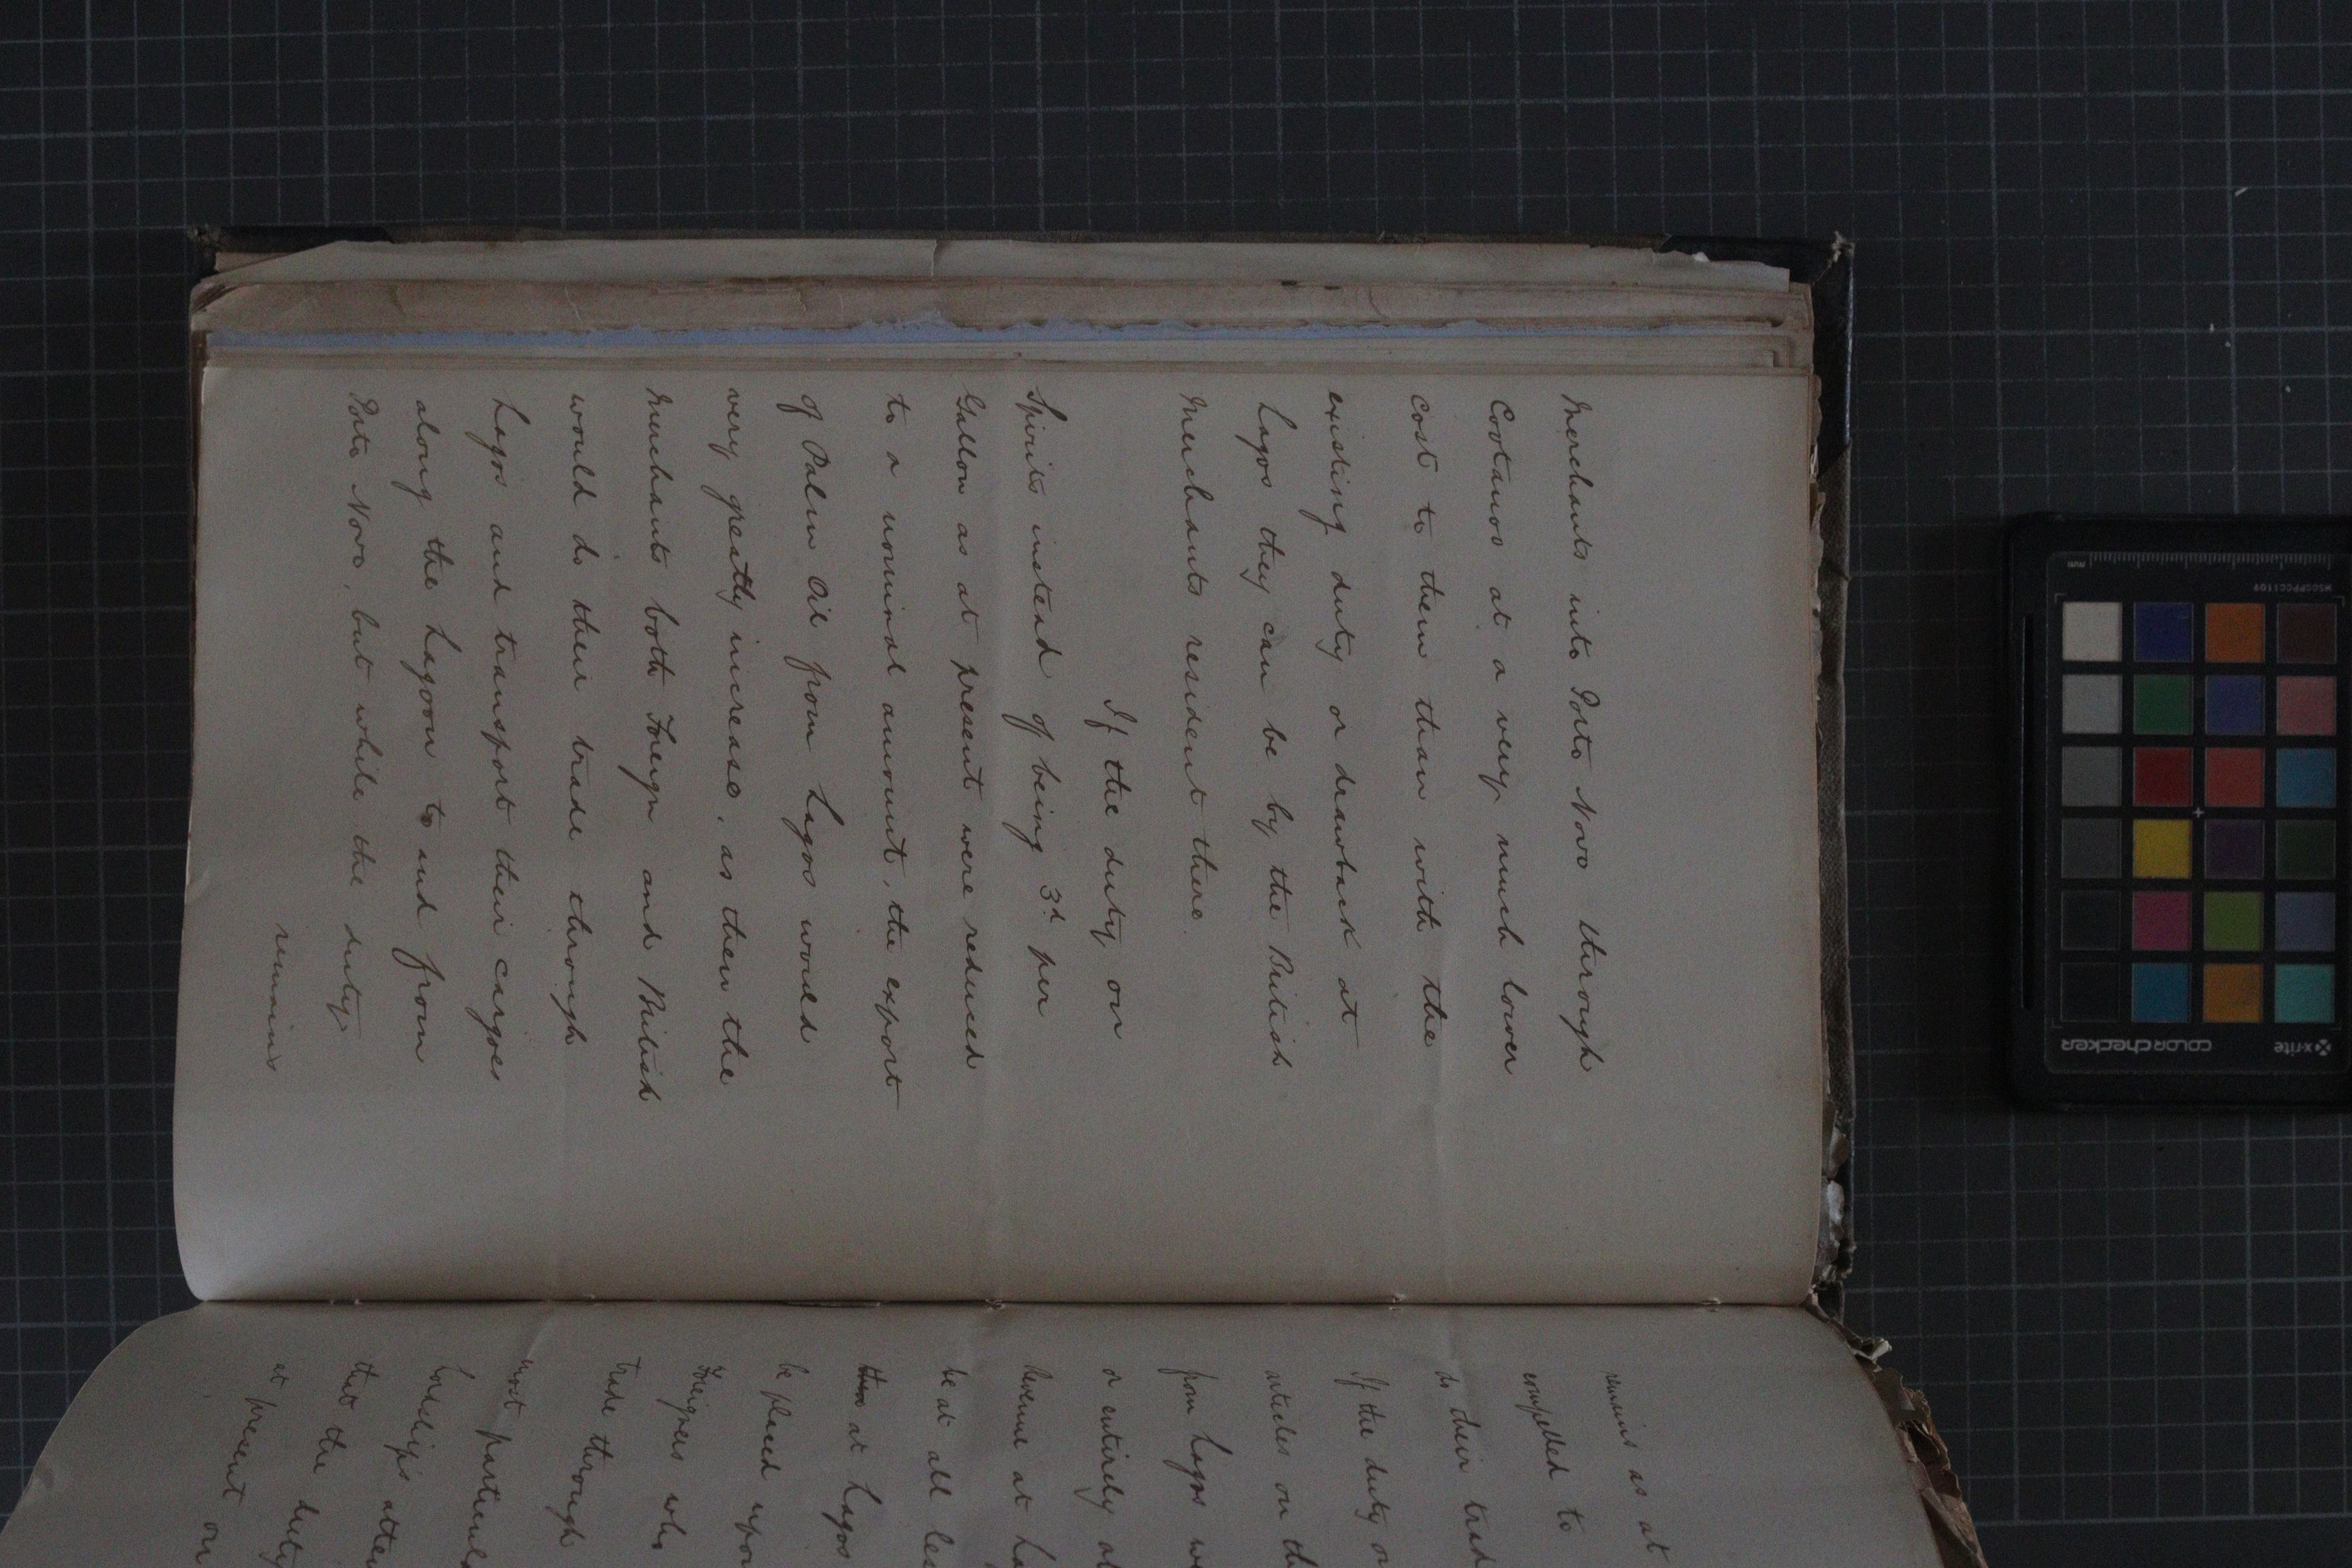 Merchants into Porto Novo through
Cootanoo at a very much lower
cost to them than with the
existing duty or drawback at
Lagos they can be by the British
Merchants resident there.
If the duty on
Spirits instead of being 3d per
Gallon as at present were reduced
to a nominal amount, the export
of Palm Oil from Lagos would
very greatly increase, as then the
Merchants both Foreign and British
would do their trade through
Lagos and transport their cargoes
along the Lagoon to and from
Porto Novo, but while the duty
remains
remains as at
compelled to
do their trad
If the duty o
articles on th
from Lagos w
or entirely ab
Revenue at La
be at all les
at Lagos
be placed upon
Foreigners who
trade through
most particul
Lordship's atten
that the duty
at present on
x-rite
colorchecker
MSCCPPCC1109
mm